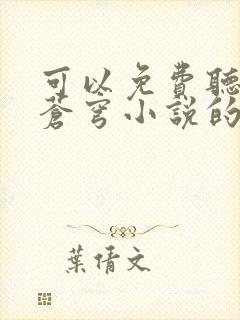 可以免費聽
蒼穹小說的
葉倩文